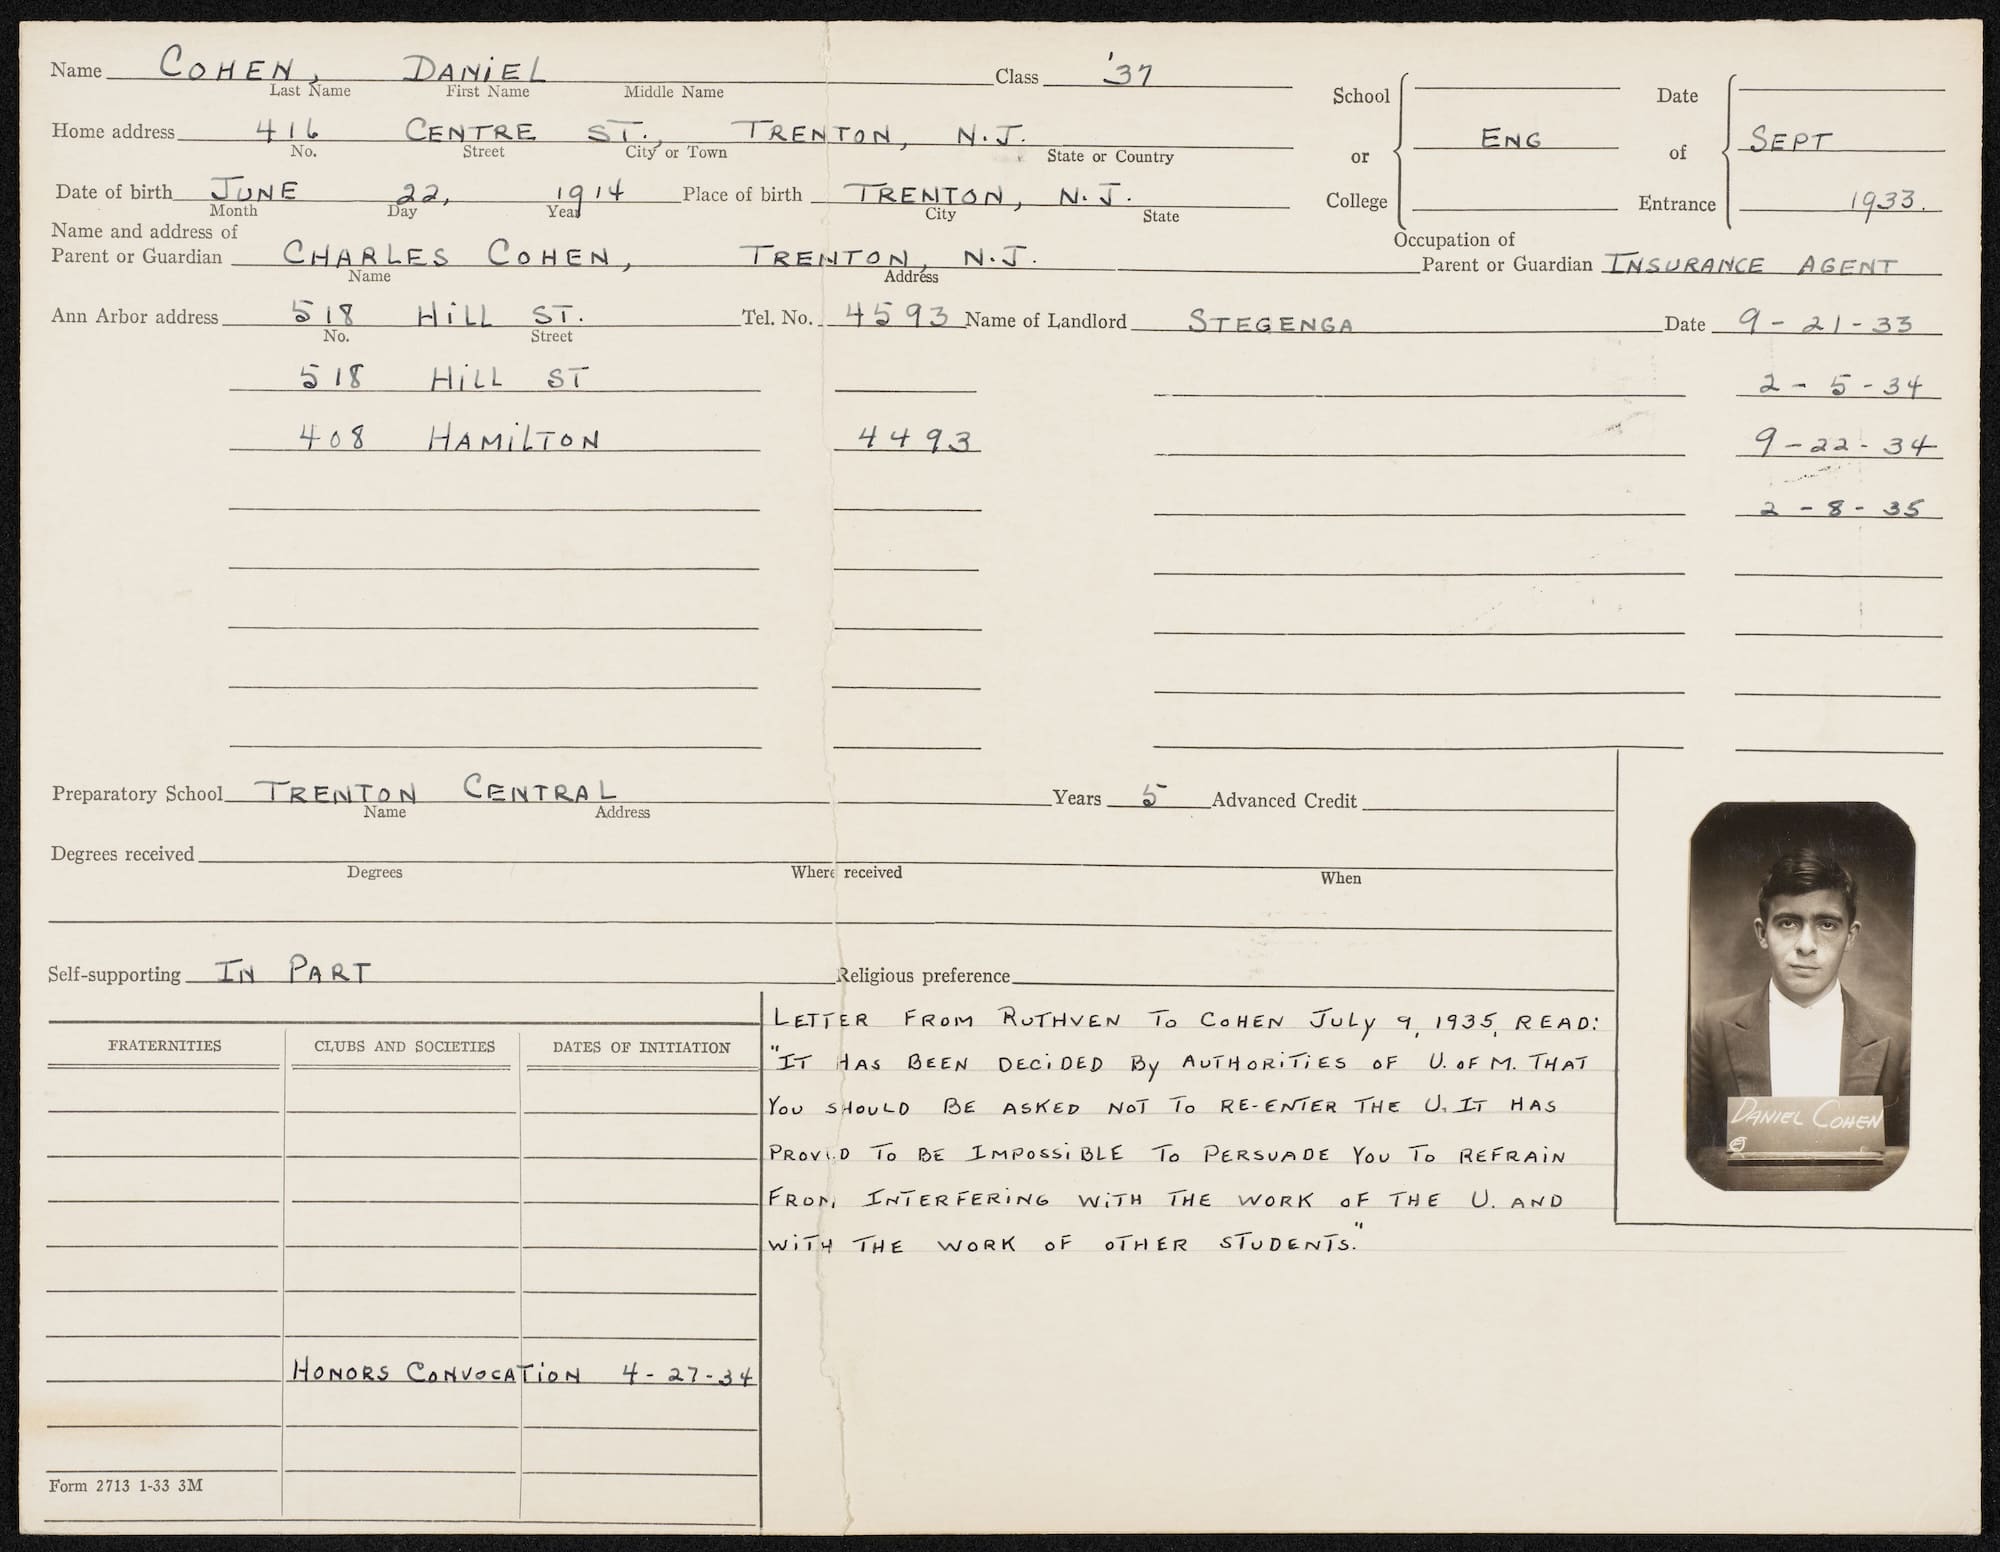 Name COHEN, DANIEL Class '37
Last Name First Name Middle Name
School or College ENG
Date of Entrance SEPT 1933.
Home address 416 CENTRE ST., TRENTON, N.J.
No. Street City or Town State or Country
Date of birth JUNE 22, 1914 Place of birth TRENTON, N.J.
Month Day Year City State
Name and address of
Parent or Guardian CHARLES COHEN, TRENTON, N.J.
Name Address
Occupation of
Parent or Guardian INSURANCE AGENT
Ann Arbor address 518 HILL ST. Tel. No. 4593 Name of Landlord STEGENGA Date 9-21-33
No. Street
518 HILL ST 2-5-34
408 HAMILTON 4493 9-22-34
2-8-35
Preparatory School TRENTON CENTRAL Years 5 Advanced Credit
Name Address
Degrees received
Degrees Where received When
Self-supporting IN PART Religious preference
FRATERNITIES CLUBS AND SOCIETIES DATES OF INITIATION
HONORS CONVOCATION 4-27-34
Form 2713 1-33 3M
LETTER FROM RUTHVEN TO COHEN JULY 9, 1935, READ:
"IT HAS BEEN DECIDED BY AUTHORITIES OF U. OF M. THAT
YOU SHOULD BE ASKED NOT TO RE-ENTER THE U. IT HAS
PROVED TO BE IMPOSSIBLE TO PERSUADE YOU TO REFRAIN
FROM INTERFERING WITH THE WORK OF THE U. AND
WITH THE WORK OF OTHER STUDENTS."
DANIEL COHEN
E